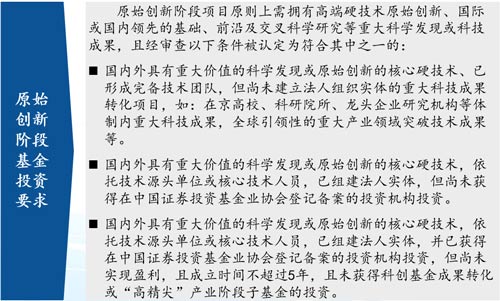 原始
创新
阶段
基金
投资
要求
原始创新阶段项目原则上需拥有高端硬技术原始创新、国际
或国内领先的基础、前沿及交叉科学研究等重大科学发现或科技
成果，且经审查以下条件被认定为符合其中之一的：
■ 国内外具有重大价值的科学发现或原始创新的核心硬技术、已
形成完备技术团队，但尚未建立法人组织实体的重大科技成果
转化项目，如：在京高校、科研院所、龙头企业研究机构等体
制内重大科技成果，全球引领性的重大产业领域突破技术成果
等。
■ 国内外具有重大价值的科学发现或原始创新的核心硬技术，依
托技术源头单位或核心技术人员，已组建法人实体，但尚未获
得在中国证券投资基金业协会登记备案的投资机构投资。
■ 国内外具有重大价值的科学发现或原始创新的核心硬技术，依
托技术源头单位或核心技术人员，已组建法人实体，并已获得
在中国证券投资基金业协会登记备案的投资机构投资，但尚未
实现盈利，且成立时间不超过5年，且未获得科创基金成果转化
或“高精尖”产业阶段子基金的投资。